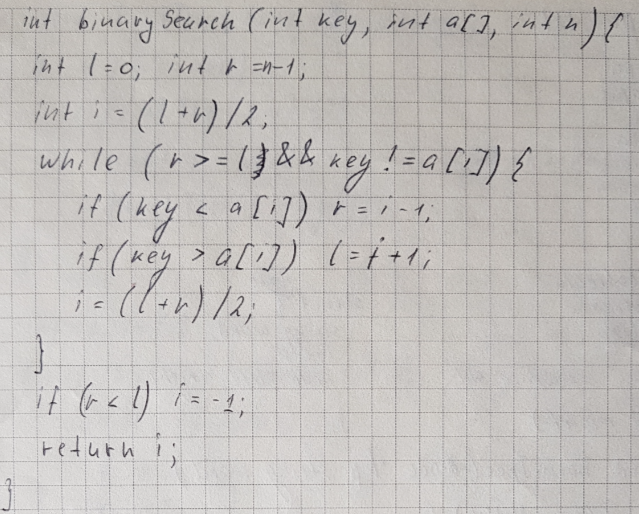 int binarySearch (int key, int a[], int n) {
int l=0; int r=n-1;
int i = (l+r)/2;
while (r >= l && key != a[i]) {
if (key < a[i]) r = i-1;
if (key > a[i]) l = i+1;
i = (l+r)/2;
}
if (r < l) i = -1;
return i;
}